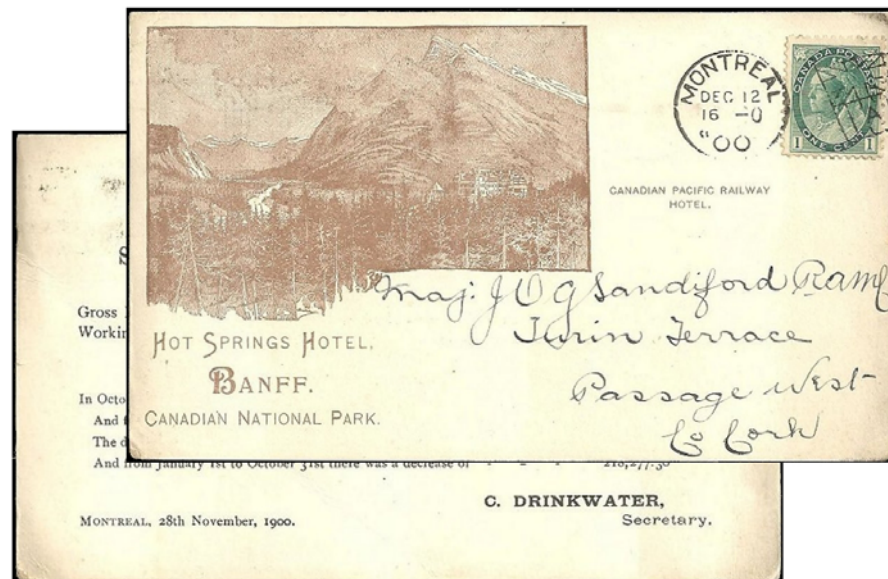 MONTREAL
DEC 12
16-0
"00
CANADA POSTAGE
ONE CENT
1 1
CANADIAN PACIFIC RAILWAY
HOTEL.
Maj: J O G Sandiford RAMC
Turin Terrace
Passage West
Co Cork
HOT SPRINGS HOTEL,
BANFF.
CANADIAN NATIONAL PARK.
S
Gross
Workin
In Octo
And f
The d
And from January 1st to October 31st there was a decrease of - - - 218,277.30
C. DRINKWATER,
Secretary.
MONTREAL, 28th November, 1900.